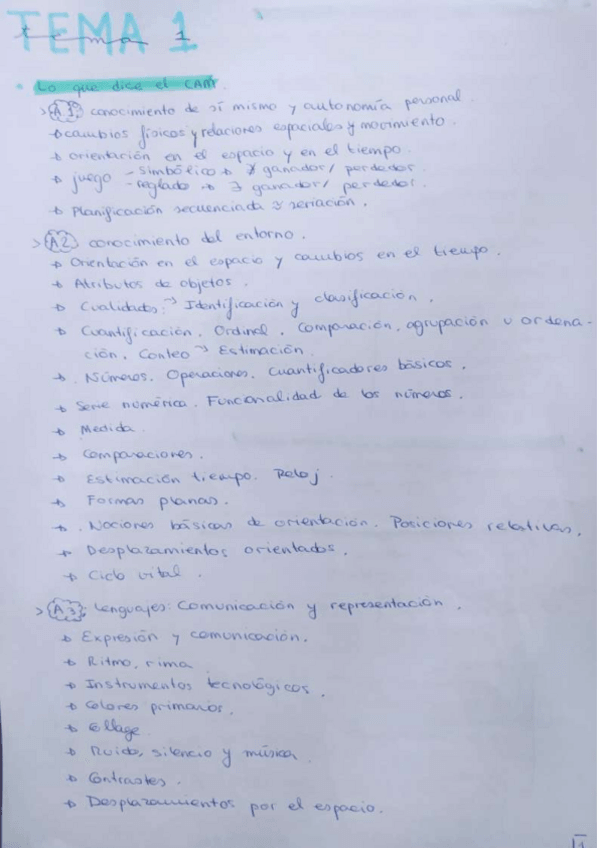 TEMA 1
tema 1
• Lo que dice el CAM.
> A1: conocimiento de sí mismo y autonomía personal.
→ cambios físicos y relaciones espaciales y movimiento.
→ orientación en el espacio y en el tiempo.
→ juego - simbólico → ∄ ganador/ perdedor.
- reglado → ∃ ganador/ perdedor.
→ Planificación secuenciada y seriación.
> A2: conocimiento del entorno.
→ Orientación en el espacio y cambios en el tiempo.
→ Atributos de objetos.
→ Cualidades: → Identificación y clasificación.
→ Cuantificación. Ordinal. Comparación, agrupación u ordena-
ción. Conteo → Estimación.
→ Números. Operaciones. Cuantificadores básicos.
→ Serie numérica. Funcionalidad de los números.
→ Medida.
→ Comparaciones.
→ Estimación tiempo. Reloj.
→ Formas planas.
→ Nociones básicas de orientación. Posiciones relativas.
→ Desplazamientos orientados.
→ Ciclo vital.
> A3: Lenguajes: Comunicación y representación.
→ Expresión y comunicación.
→ Ritmo, rima
→ Instrumentos tecnológicos.
→ Colores primarios.
→ Collage.
→ Ruido, silencio y música.
→ Contrastes.
→ Desplazamientos por el espacio.
1